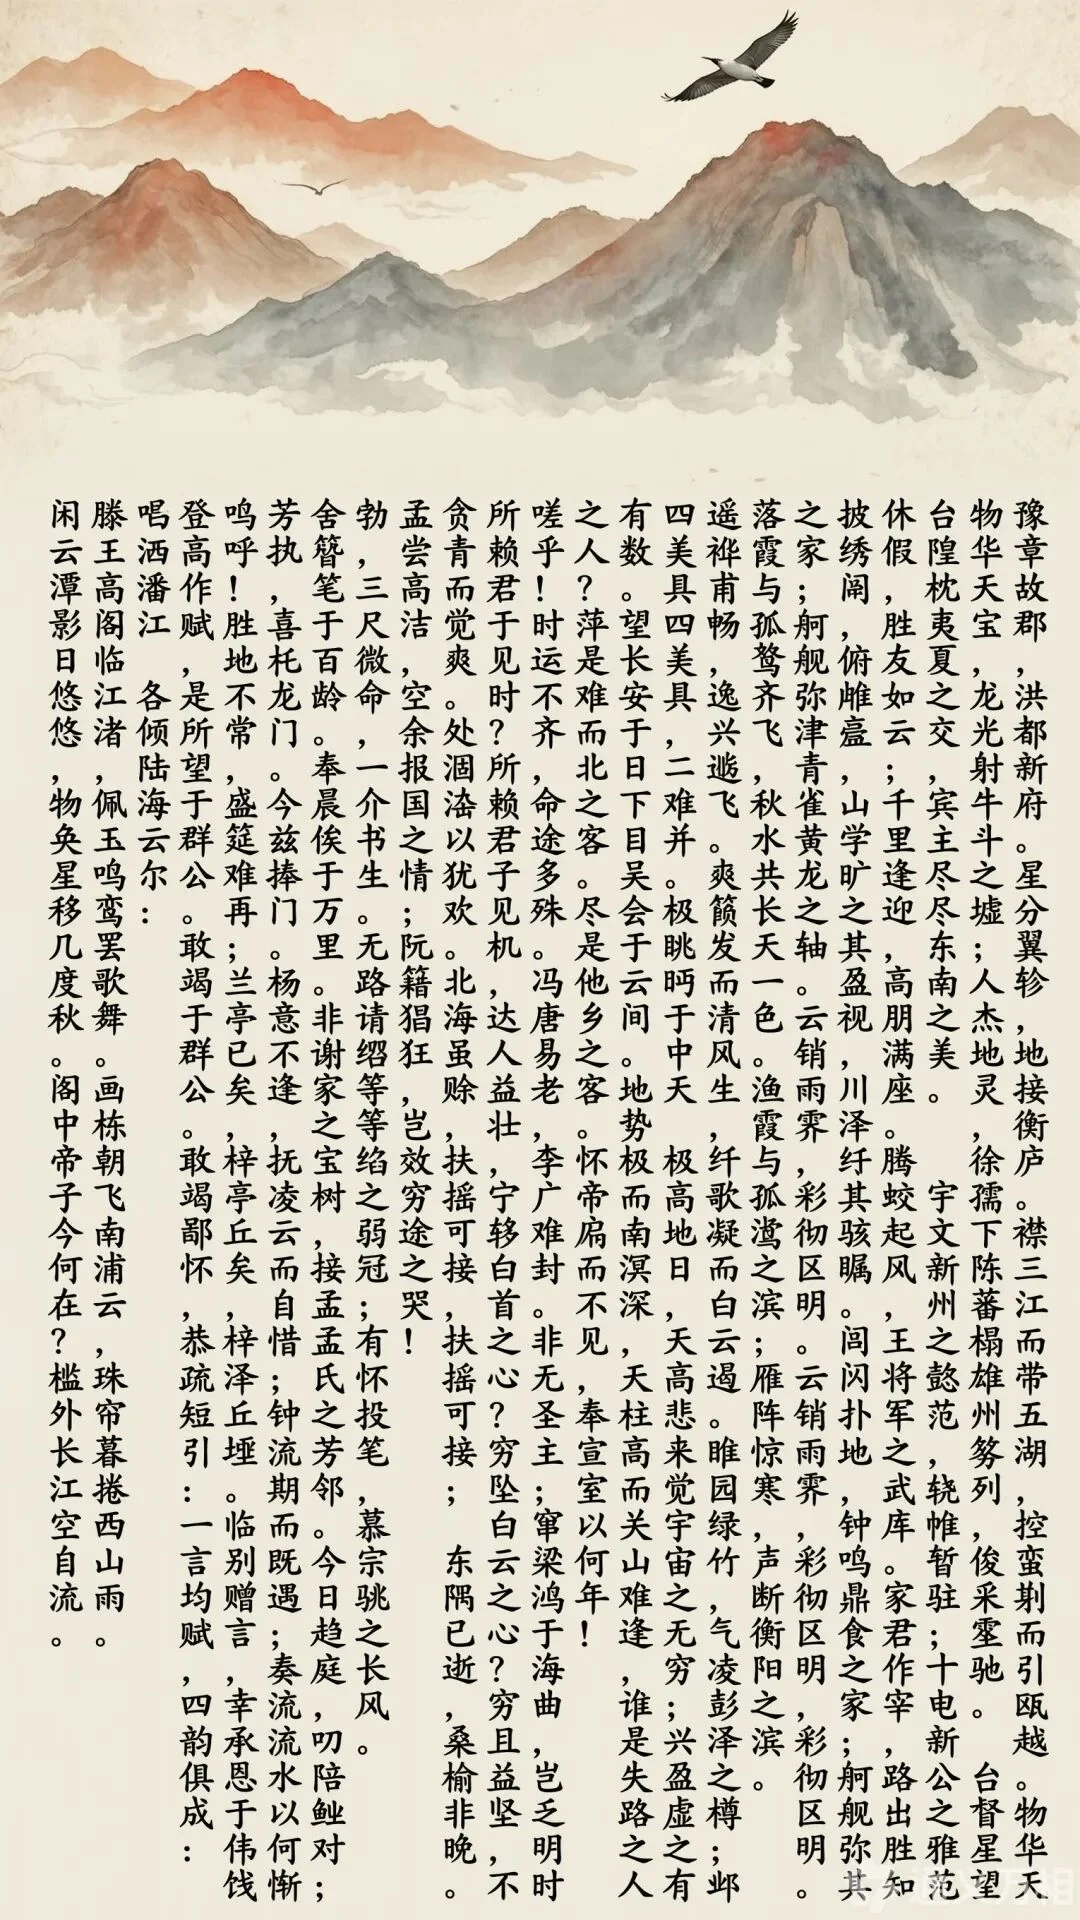 豫章故郡，洪都新府。星分翼轸，地接衡庐。襟三江而带五湖，控蛮荆而引瓯越。物华天
物华天宝，龙光射牛斗之墟；人杰地灵，徐孺下陈蕃榻雄州务列，俊采霆驰。 台督星望
台隍枕夷夏之交，宾主尽尽东南之美。 宇文新州之懿范，帷暂驻；十电新公之雅范
休假，胜友如云；千里逢迎，高朋满座。 腾蛟起风，王将军之武库。家君作宰，路出胜知
披绣，俯，山学旷之其盈视，川泽纤其骇瞩。闾闪扑地，钟鸣鼎食之家；舸舰弥其
之家；舸舰弥津青雀黄龙之轴。云销雨霁，彩彻区明。云销雨霁，彩彻区明，彩彻区明。
落霞与孤鹜齐飞，秋水共长天一色。渔霞与孤之滨；雁阵惊寒，声断衡阳之滨。
遥甫畅，逸兴飞。爽发而清风生，纤歌凝而白云遏。睢园绿竹，气凌彭泽之樽；邺
四美具四美具，二难并。极眺眄于中天 极高地日，天高悲来觉宇宙之无穷；兴盈虚之有
有数。望长安于日下目吴会于云间。地势极而南溟深，天柱高而关山难逢，谁是失路之人
之人？萍是难而北之客。尽是他乡之客。怀帝扃而不见，奉宣室以何年！
嗟乎！时运不齐，命途多殊。冯唐易老，李广难封。非无圣主；窜梁鸿于海曲，岂乏明时
所赖君于见时？所赖君子见机，达人益壮，宁移白首之心？穷坠白云之心？穷且益坚，不
贪青而觉爽。处涸以犹欢。北海虽赊，扶摇可接，扶摇可接； 东隅已逝，桑榆非晚。
孟尝高洁，空余报国之情；阮籍猖狂，岂效穷途之哭！
勃，三尺微命，一介书生。无路请等等之弱冠；有怀投笔，慕宗之长风。
舍簪笔于百龄。奉晨俟于万里。非谢家之宝树，接孟孟氏之芳邻。今日趋庭，叨陪对；
芳执，喜托龙门。今兹捧门。杨意不逢，抚凌云而自惜；钟流期而既遇；奏流流水以何惭
鸣呼！胜地不常，盛筵难再；兰亭已矣，，梓亭丘矣，梓泽丘垭。临别赠言，幸承恩于伟饯
登高作赋，是所望于群公。敢竭于群公。敢竭鄙怀，恭疏短引：一言均赋，四韵俱成：
唱洒潘江 各倾陆海云尔：
滕王高阁临江渚，佩玉鸣鸾罢歌舞。画栋朝飞南浦云，珠帘暮捲西山雨。
闲云潭影日悠悠，物奂星移几度秋。阁中帝子今何在？槛外长江空自流。